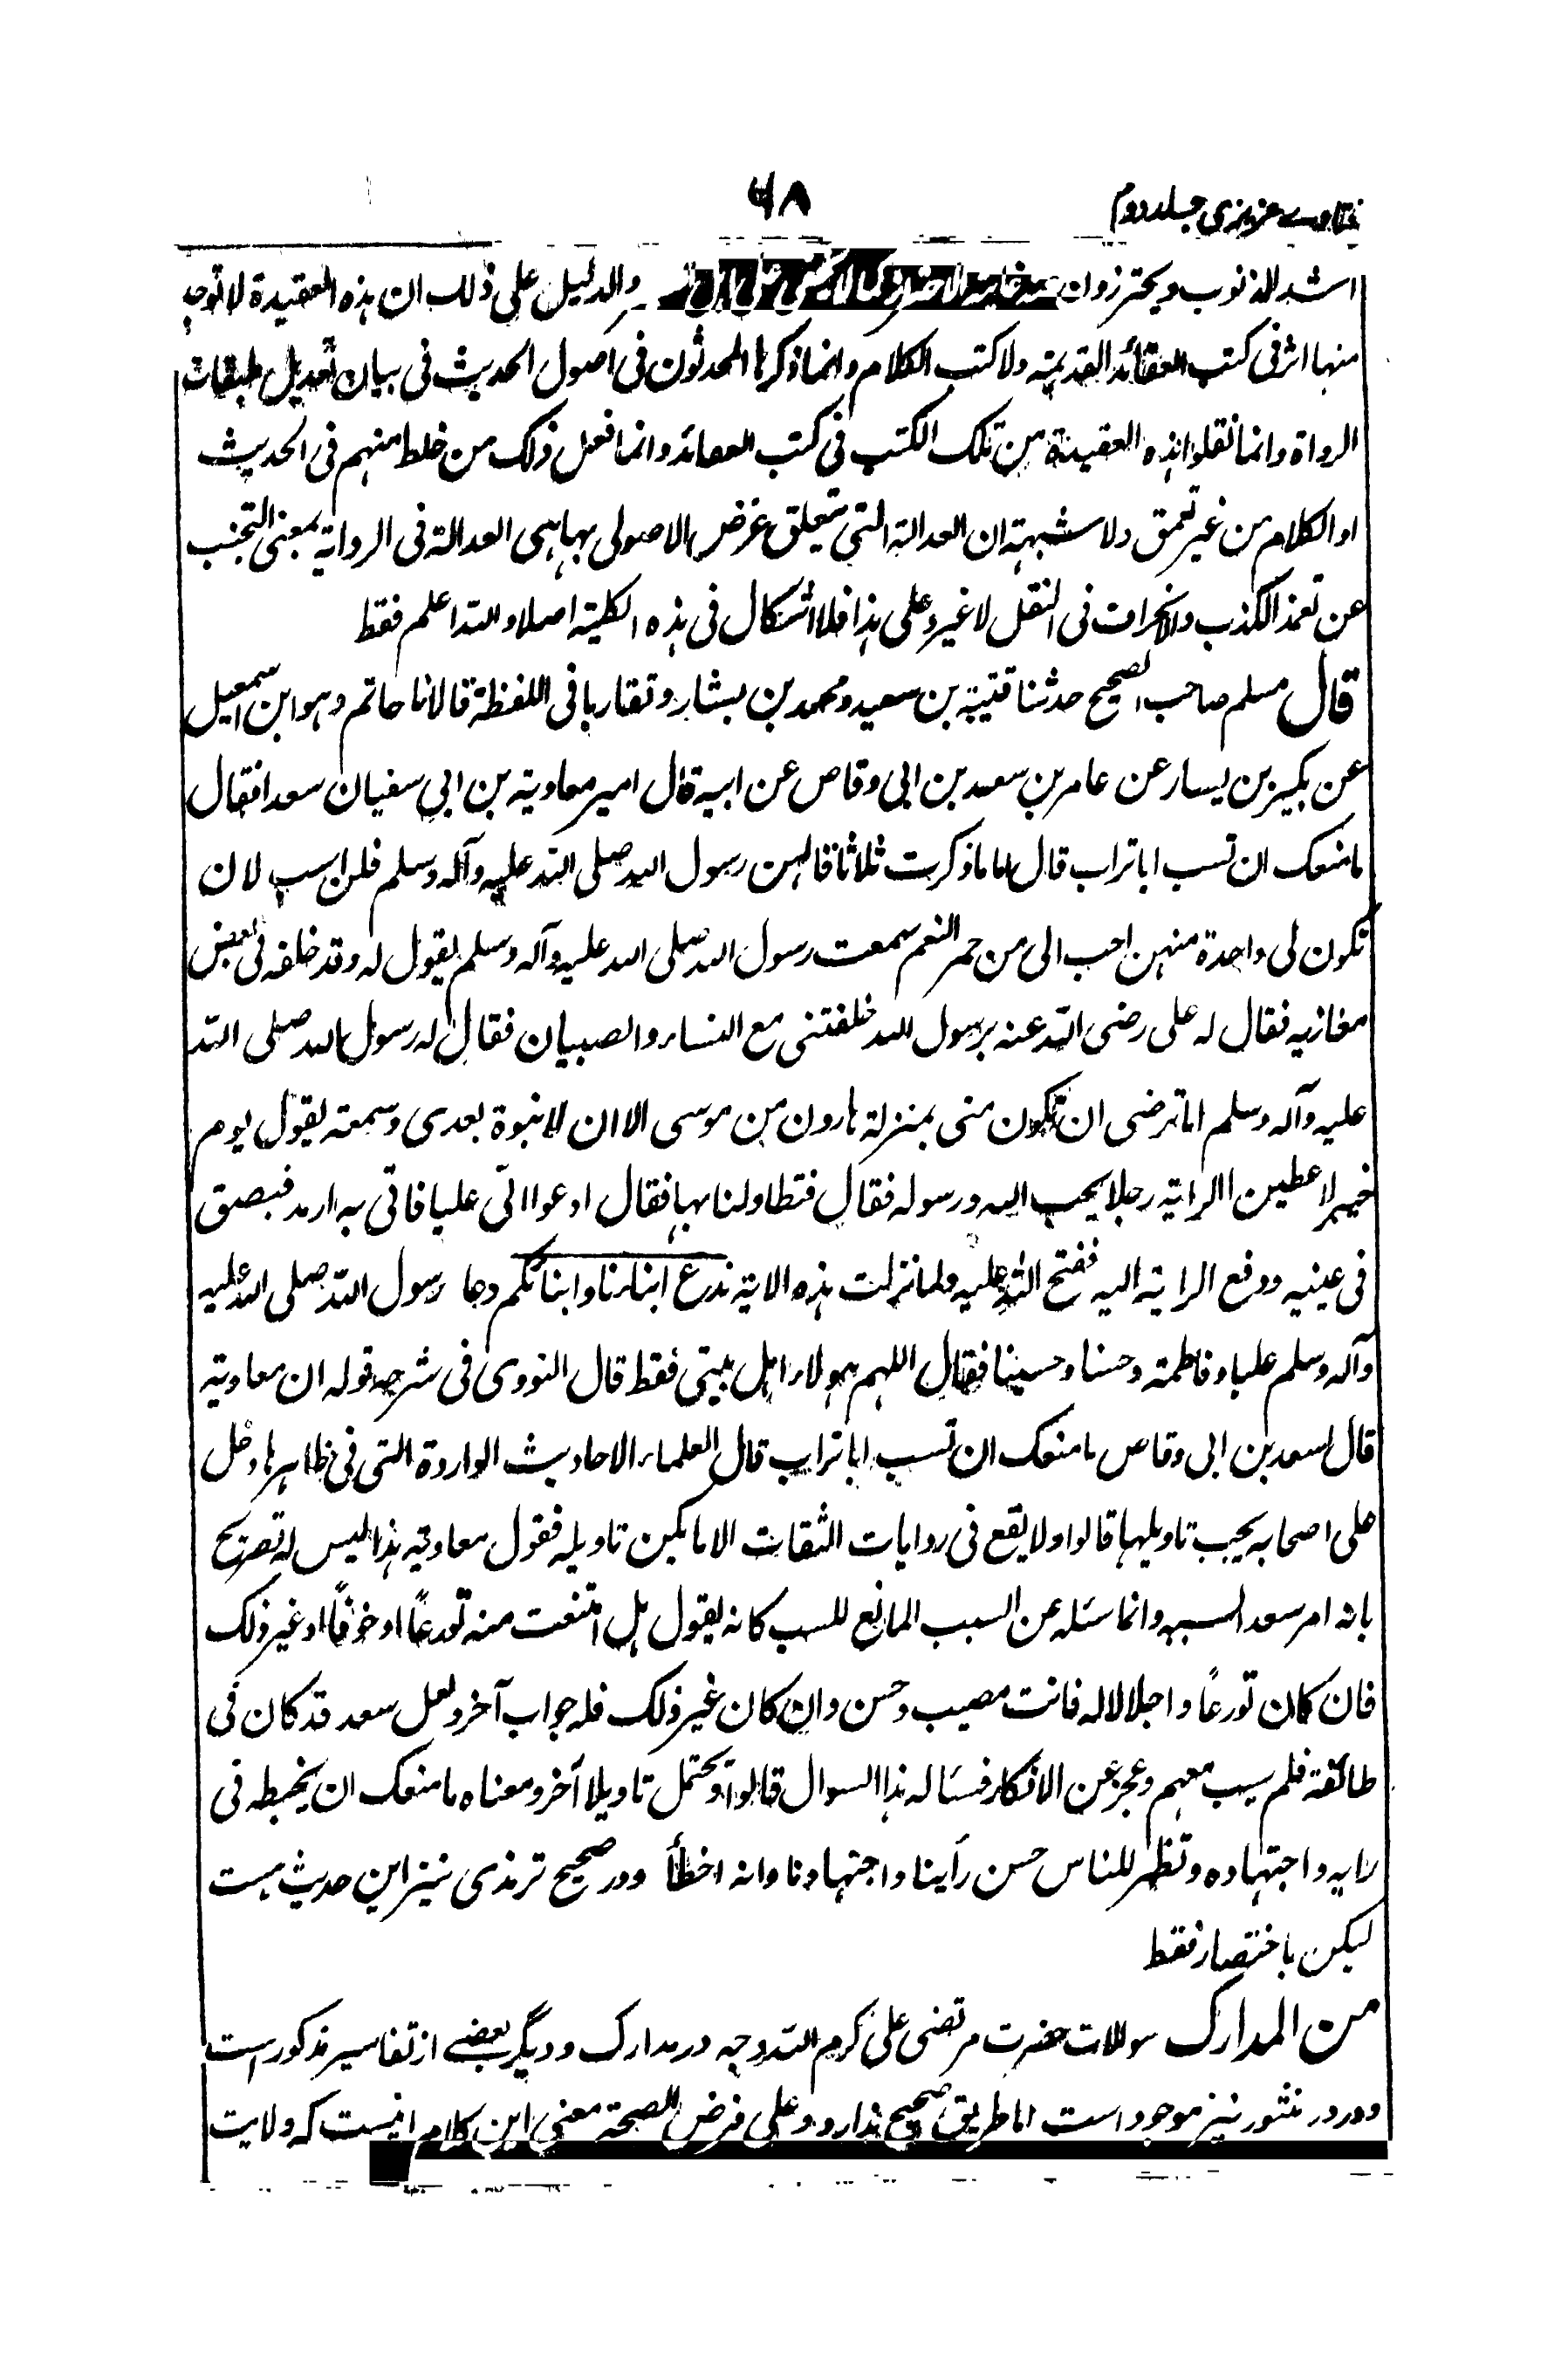 فتاوے عزیزی جلد دوم
۶۸
اشد الذنوب ویحترزون عنه غایة الاحتراز والدلیل علی ذلک ان هذه العقیدة لا توجد
منها اثر فی کتب العقائد القدیمة ولا کتب الکلام وانما ذکرها المحدثون فی اصول الحدیث فی بیان تعدیل طبقات
الرواة وانما نقلوا هذه العقیدة من تلک الکتب فی کتب العقائد وانما فعل ذلک من خلط منهم فی الحدیث
او الکلام من غیر تعمق ولا شبهة ان العدالة التی یتعلق غرض الاصولی بها هی العدالة فی الروایة بمعنی التجنب
عن تعمد الکذب والانحراف فی النقل لا غیر وعلی هذا فلا اشکال فی هذه الکلیة اصلا والله اعلم فقط
قال مسلم صاحب الصحیح حدثنا قتیبة بن سعید ومحمد بن بشار وتقاربا فی اللفظة قالا نا حاتم وهو ابن اسمعیل
عن بکیر بن یسار عن عامر بن سعد بن ابی وقاص عن ابیه قال امیر معاویة بن ابی سفیان سعدا فقال
ما منعک ان تسب ابا تراب قال اما ما ذکرت ثلاثا قالهن رسول الله صلی الله علیه وآله وسلم فلن اسب لان
تکون لی واحدة منهن احب الی من حمر النعم سمعت رسول الله صلی الله علیه وآله وسلم یقول له وقد خلفه فی بعض
مغازیه فقال له علی رضی الله عنه یرسول الله خلفتنی مع النساء والصبیان فقال له رسول الله صلی الله
علیه وآله وسلم اما ترضی ان تکون منی بمنزلة هارون من موسی الا ان لا نبوة بعدی وسمعته یقول یوم
خیبر لاعطین الرایة رجلا یحب الله ورسوله فقال فتطاولنا بها فقال ادعوا الی علیا فاتی به ارمد فبصق
فی عینیه ودفع الرایة الیه ففتح الله علیه ولما نزلت هذه الایة ندع ابناءنا وابنائکم دعا رسول الله صلی الله علیه
وآله وسلم علیا وفاطمة وحسنا وحسینا فقال اللهم هولاء اهل بیتی فقط قال النووی فی شرحه قوله ان معاویة
قال لسعد بن ابی وقاص ما منعک ان تسب ابا تراب قال العلماء الاحادیث الواردة التی فی ظاهرها دخل
علی اصحابه یجب تاویلها قالوا ولا یقع فی روایات الثقات الا ما یمکن تاویله فقول معاویة هذا لیس له تصریح
بانه امر سعدا لسبه وانما سئله عن السبب المانع للسب کانه یقول هل امتنعت منه تورعاً او خوفاً او غیر ذلک
فان کان تورعاً واجلالا له فانت مصیب وحسن وان کان غیر ذلک فله جواب آخر ولعل سعد قد کان فی
طائفة فلم یسب معهم وعجز عن الانکار فسئاله هذا السوال قالوا ویحتمل تاویلا آخر ومعناه ما منعک ان یخبطه فی
رایه واجتهاده وتظهر للناس حسن رأینا واجتهادنا وانه اخطأ ودر صحیح ترمذی نیز این حدیث هست
لیکن باختصار فقط
من المدارک سوالات حضرت مرتضی علی کرم الله وجهه در مدارک و دیگر بعضے از تفاسیر مذکور است
و در در منثور نیز موجود است اما طریق صحیح ندارد وعلی فرض الصحة معنی این کلام اینست که ولایت